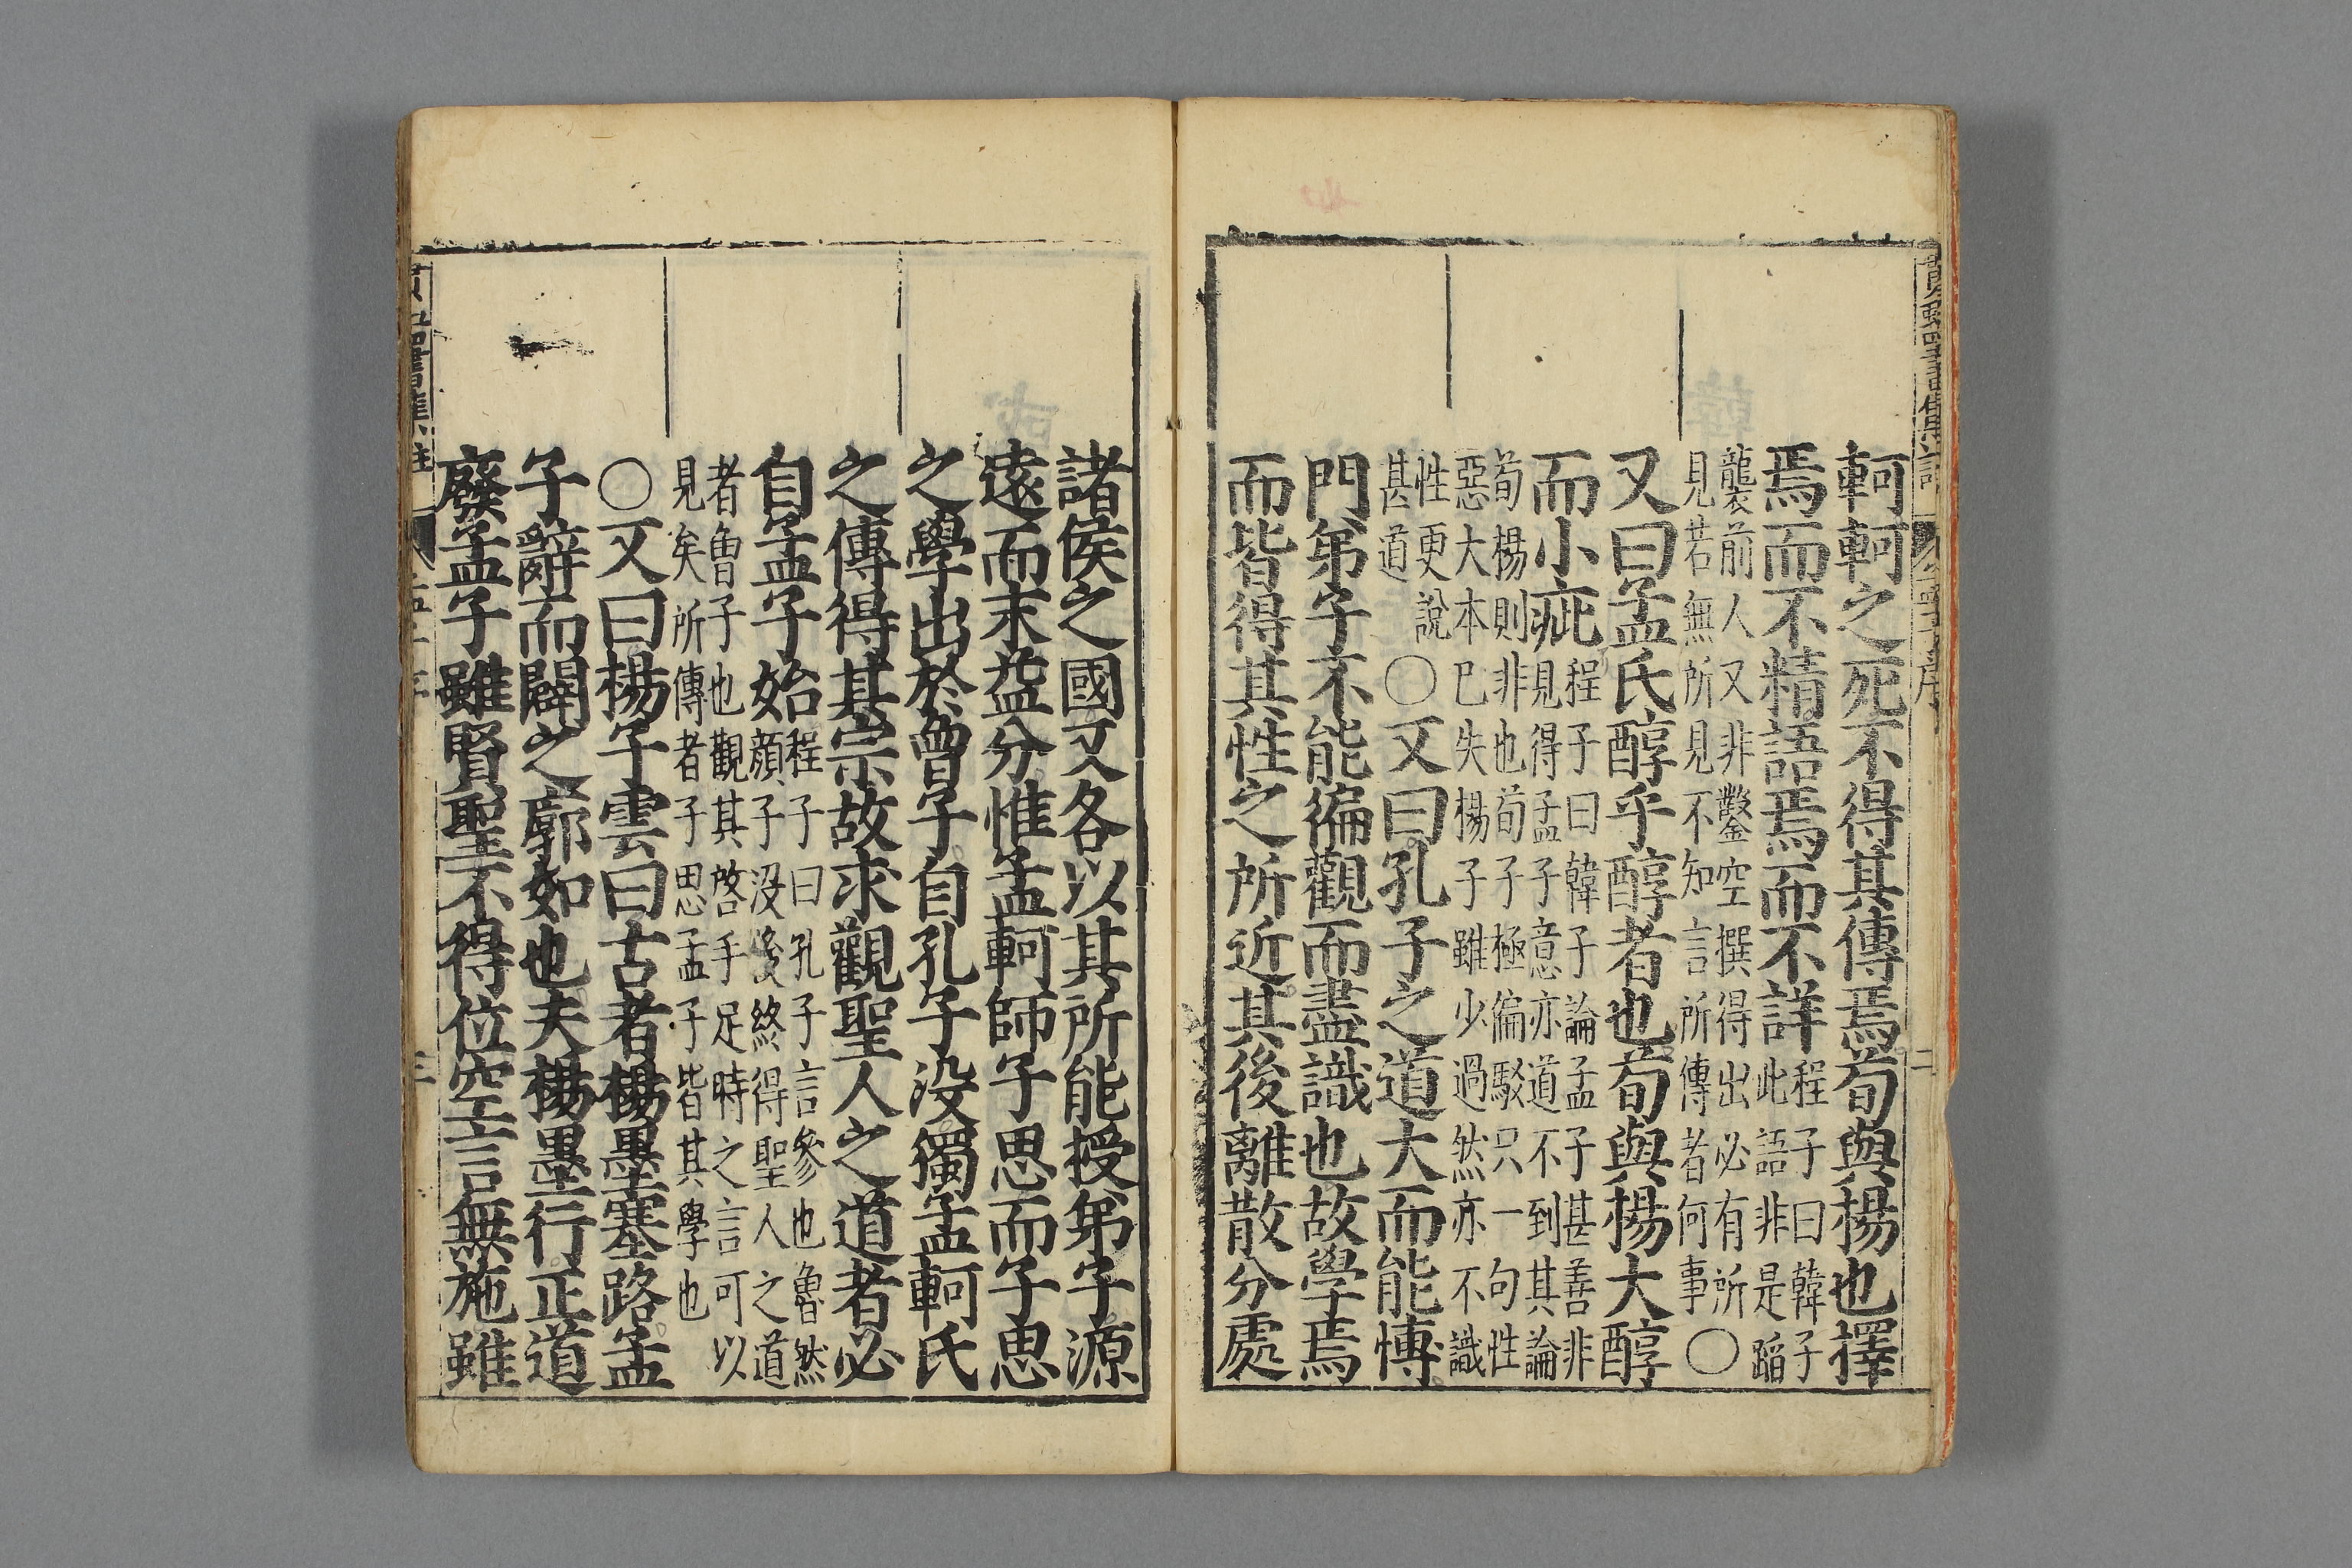 軻軻之死不得其傳焉荀與楊也擇
焉而不精語焉而不詳程子曰韓子
此語非是蹈
襲前人又非鑿空撰得出必有所
見若無所見不知言所傳者何事○
又曰孟氏醇乎醇者也荀與楊大醇
而小疵程子曰韓子論孟子甚善非
見得孟子意亦道不到其論
荀楊則非也荀子極偏駁只一句性
惡大本已失楊子雖少過然亦不識
性更說
甚道○又曰孔子之道大而能博
門弟子不能徧觀而盡識也故學焉
而皆得其性之所近其後離散分處
諸侯之國又各以其所能授弟子源
遠而末益分惟孟軻師子思而子思
之學出於曾子自孔子没獨孟軻氏
之傳得其宗故求觀聖人之道者必
自孟子始程子曰孔子言參也魯然
顔子没後終得聖人之道
者魯子也觀其啓手足時之言可以
見矣所傳者子思孟子皆其學也
○又曰楊子雲曰古者楊墨塞路孟
子辭而闢之廓如也夫楊墨行正道
廢孟子雖賢聖不得位空言無施雖